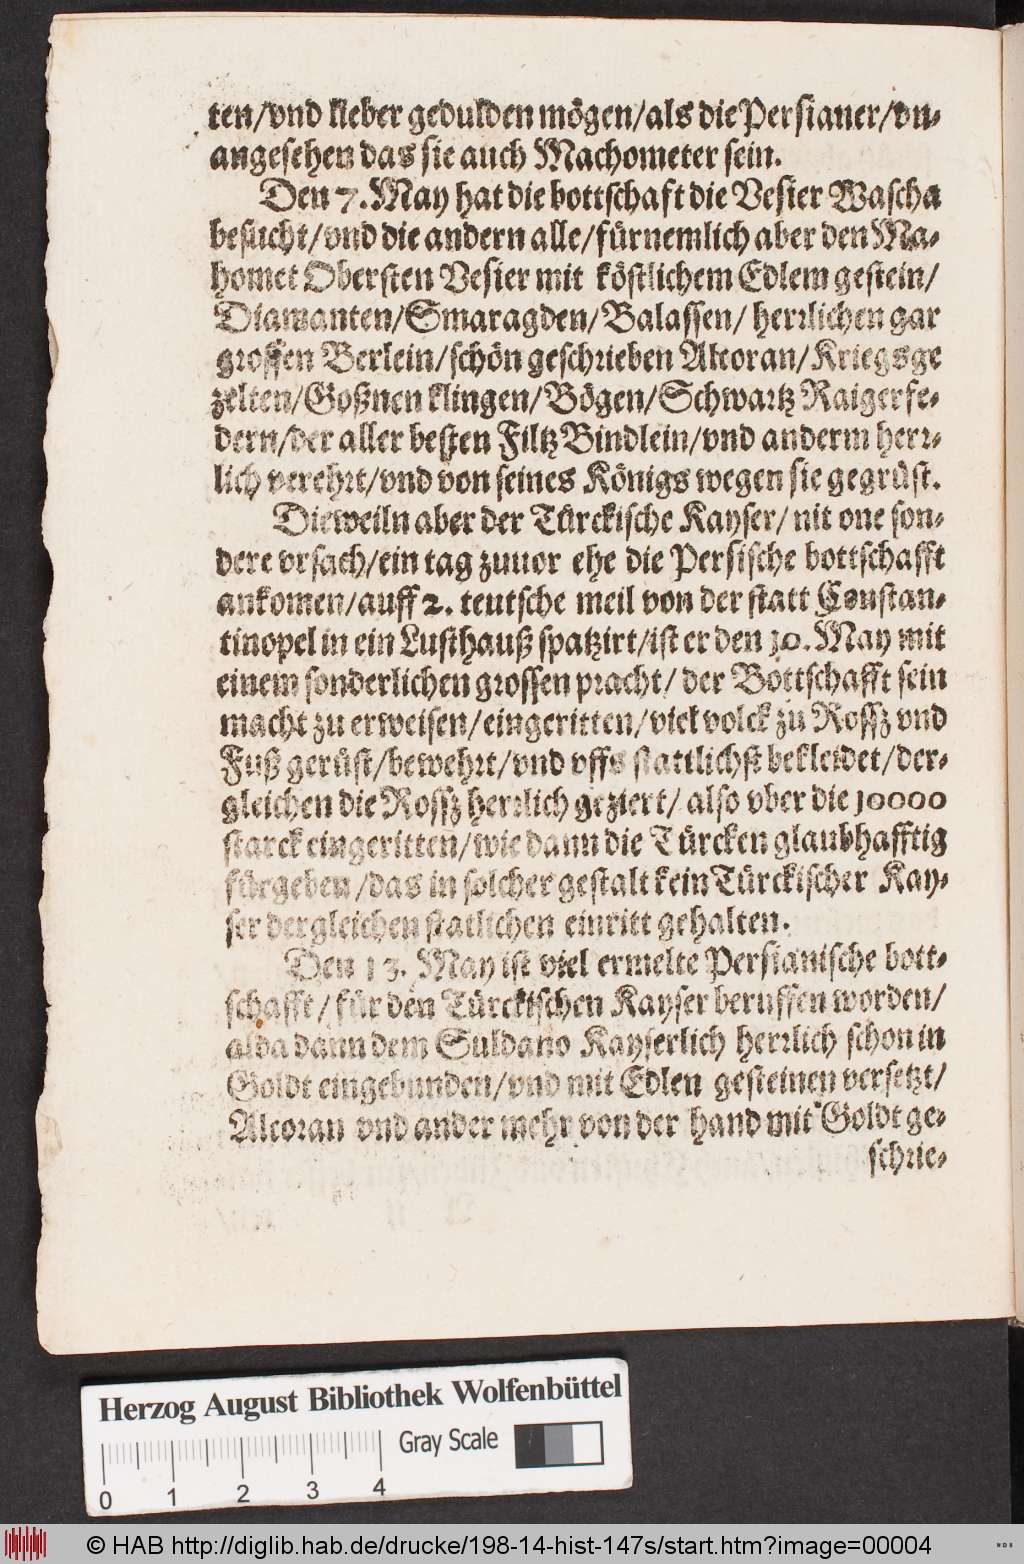 ten/vnd lieber gedulden mögen/als die Persianer/vn-
angesehen das sie auch Machometer sein.
Den 7. May hat die bottschaft die Vesier Wascha
besucht/vnd die andern alle/fürnemlich aber den Ma-
homet Obersten Vesier mit köstlichem Edlem gestein/
Diamanten/Smaragden/Balassen/ herrlichen gar
grossen Berlein/schön geschrieben Alcoran/Kriegsge
zelten/Goßnen klingen/Bögen/Schwartz Raigerfe-
dern/der aller besten Filtz Bindlein/vnd anderm herr-
lich verehrt/vnd von seines Königs wegen sie gegrüst.
Dieweiln aber der Türckische Kayser/ nit one son-
dere vrsach/ein tag zuuor ehe die Persische bottschafft
ankomen/auff 2. teutsche meil von der statt Constan-
tinopel in ein Lusthauß spatzirt/ist er den 10. May mit
einem sonderlichen grossen pracht/ der Bottschafft sein
macht zu erweisen/eingeritten/viel volck zu Rossz vnd
Fuß gerüst/bewehrt/vnd vffs stattlichst bekleidet/der-
gleichen die Rossz herrlich geziert/ also vber die 10000
starck eingeritten/wie dann die Türcken glaubhafftig
fürgeben/das in solcher gestalt kein Türckischer Kay-
ser dergleichen statlichen einritt gehalten.
Den 13. May ist viel ermelte Persianische bott-
schafft/ für den Türckischen Kayser beruffen worden/
alda dann dem Suldano Kayserlich herrlich schon in
Goldt eingebunden/vnd mit Edlen gesteinen versetzt/
Alcoran vnd ander mehr von der hand mit Goldt ge-
schrie-
Herzog August Bibliothek Wolfenbüttel
Gray Scale
0 1 2 3 4
© HAB http://diglib.hab.de/drucke/198-14-hist-147s/start.htm?image=00004